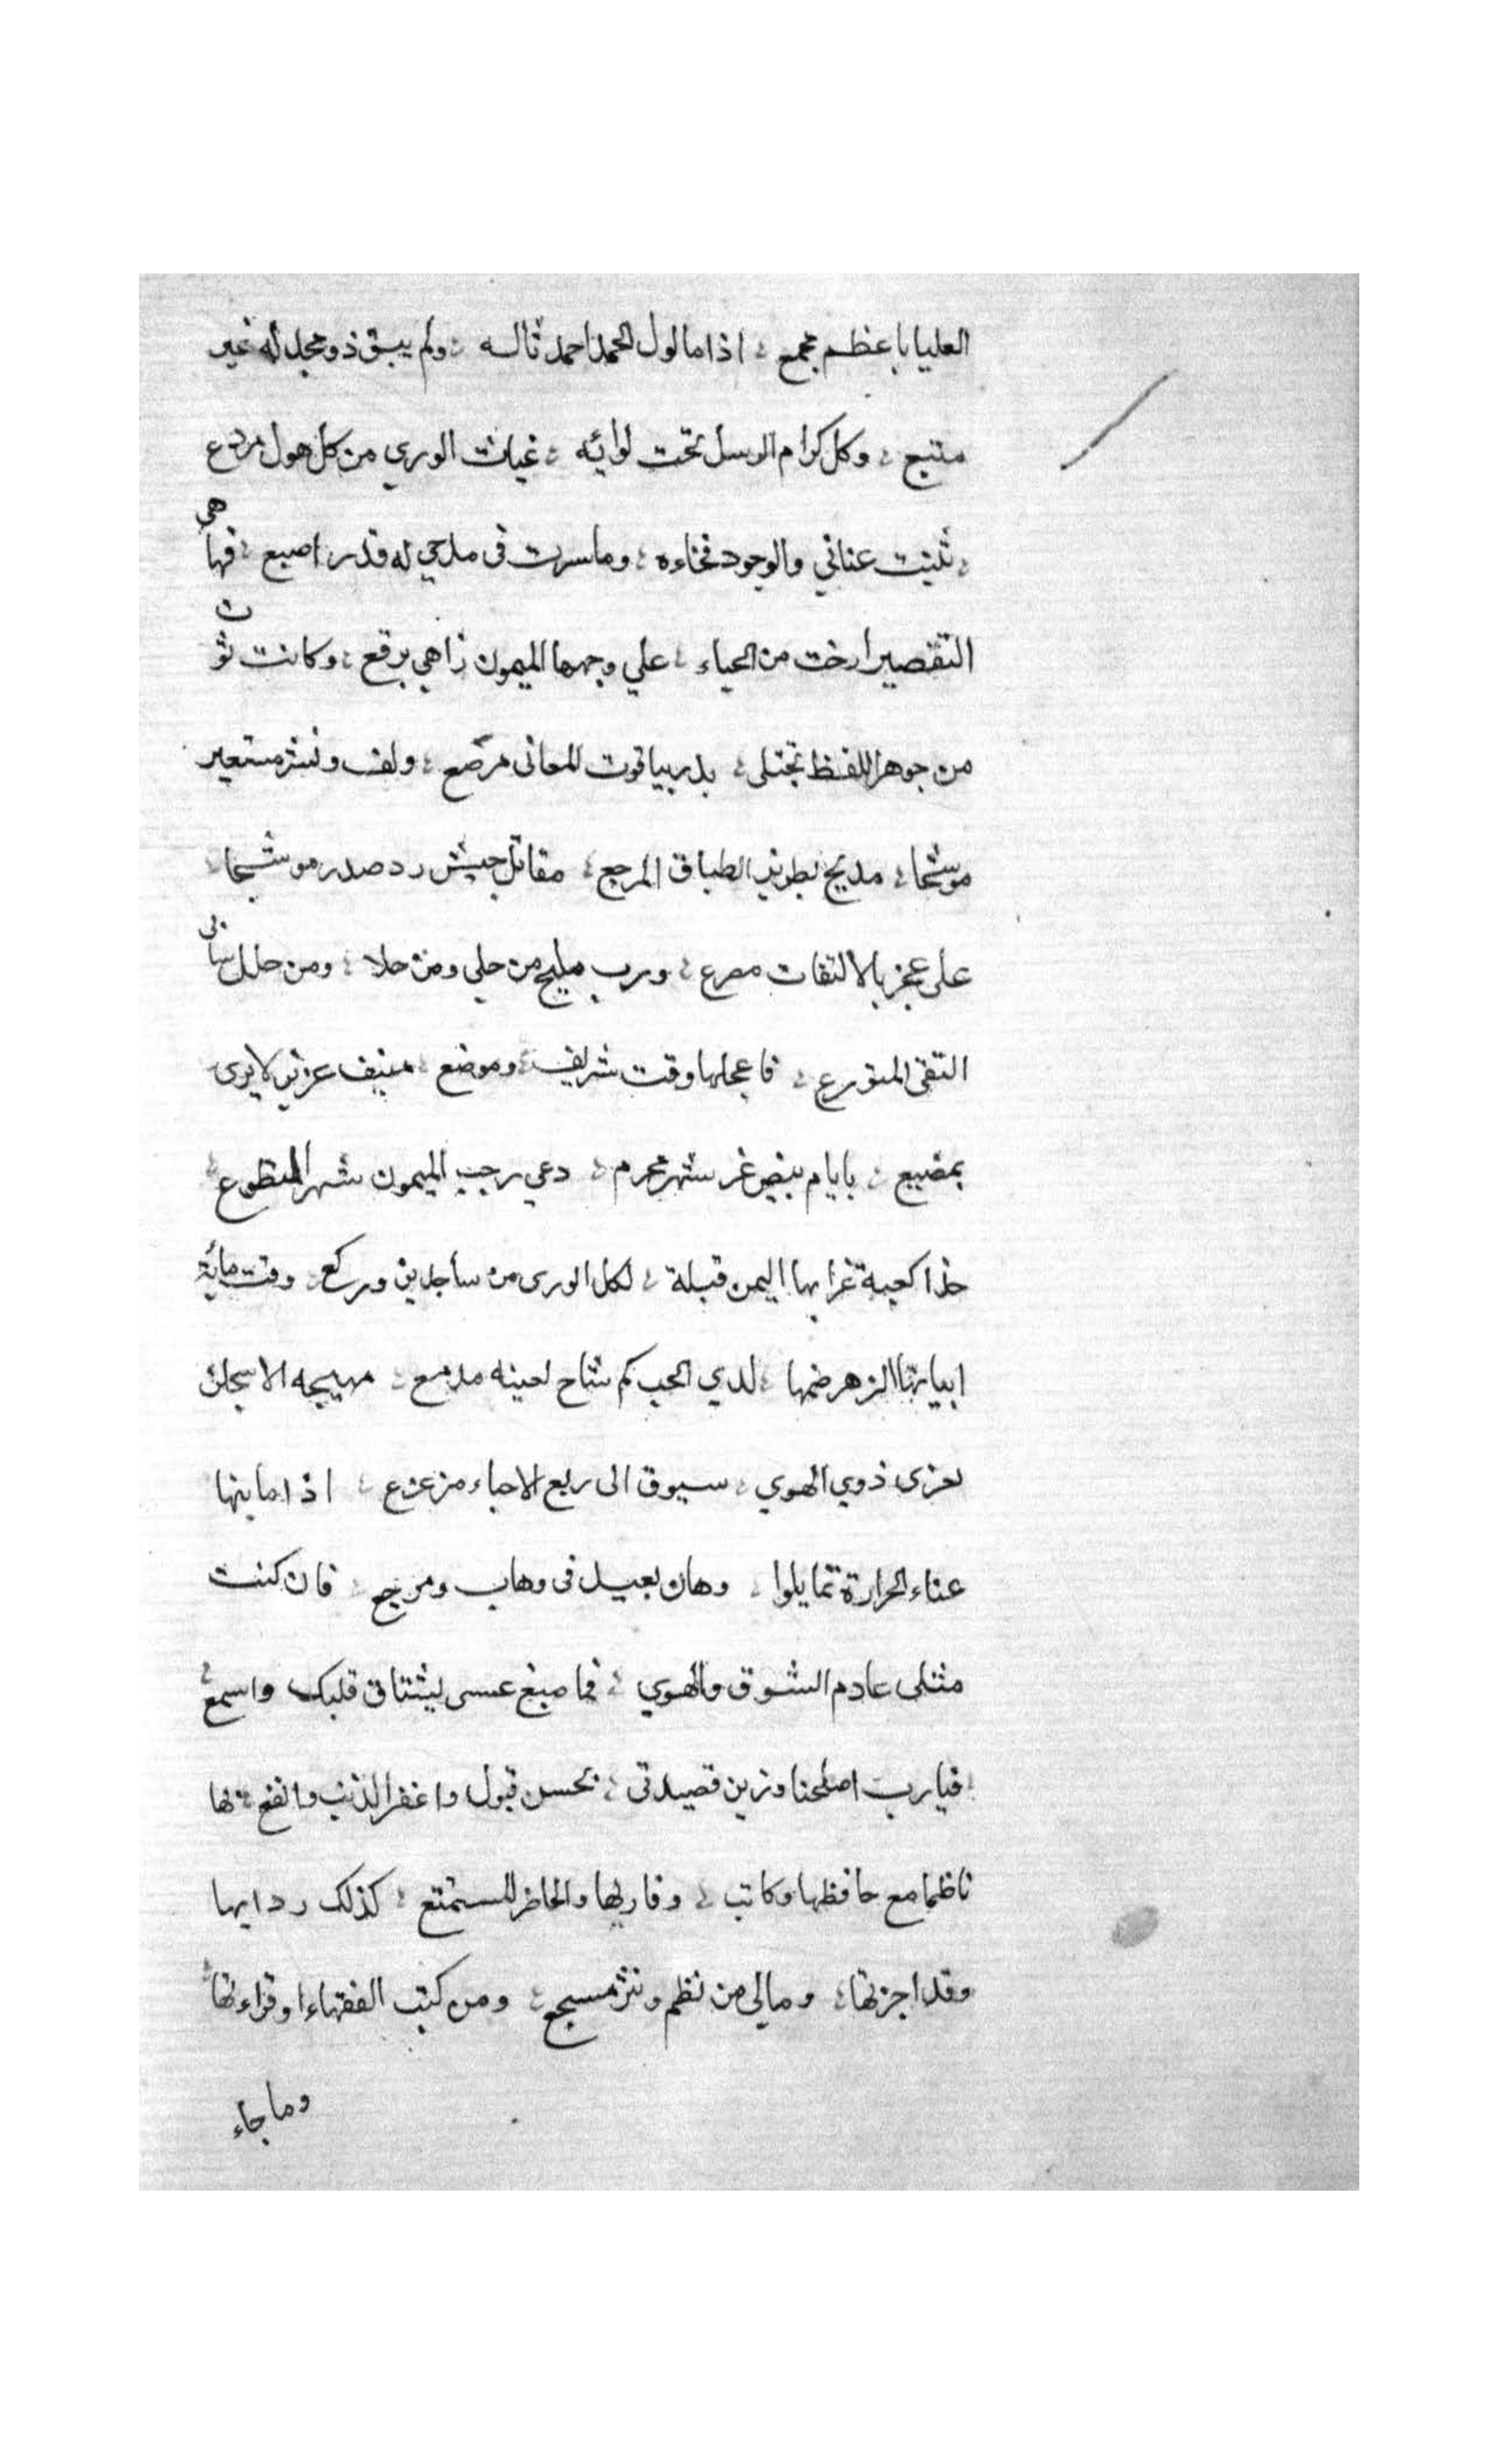 العليا باعظم مجمع ؛ اذا مالول الحمد احمد ناله ؛ ولم يبق ذو مجد له غير
متبع ؛ وكل كرام الرسل تحت لوائه ؛ غياث الوري من كل هول مردع
؛ ثنيت عناني والوجود فخاءه ؛ وما سرت في مدحي له قدر اصبع ؛ فها هي
التقصير ارخت من الحياء ؛ علي وجهها الميمون زاهي برقع ؛ وكانت ثو ت
من جوهر اللفظ تجتلى ؛ بدر بياقوت المعانى مرصع ؛ ولف ونشر مستعير
موشحا ؛ مديح بطريز الطباق المرجع ؛ مقاتل جيش رد صدر موشحا ؛
على عجز بالالتفات مصرع ؛ ورب مليح من حلي ومن حلا ؛ ومن حلل
التقى المتورع ؛ فاعجلها وقت شريف ؛ وموضع ؛ منيف عزيز لا يرى
بمضيع ؛ بايام بيض غر شهر محرم ؛ دعي رجب الميمون شهر التطوع ؛
خذا كعبة غرا بها اليمن قبلة ؛ لكل الورى من ساجدين وركع ؛ وفت مائة
ابياتها الزهر ضمها ؛ لدي الحب كم شاح لعينه مدمع ؛ مهيجه الاسجان
تعزى ذوي الهوي ؛ سيوق الى ربع الاحباء مزعزع ؛ اذا ما بنها
عناء الحرارة تمايلوا ؛ وهان بعيد في وهاب ومرجع ؛ فان كنت
مثلى عادم الشوق والهوي ؛ فما صبغ عسى يشتاق قلبك واسمع ؛
؛ فيارب اصلحنا وزين قصيدتى ؛ بحسن قبول واغفر الذنب وانفع ؛ بها
ناظما مع حافظها وكاتب ؛ وقاريها والحاضر المستمتع ؛ كذلك ردايها
وقد اجزتها ؛ ومالى من نظم ونثر مسجع ؛ ومن كتب الفقهاء او قراءتها ؛
وما جاء